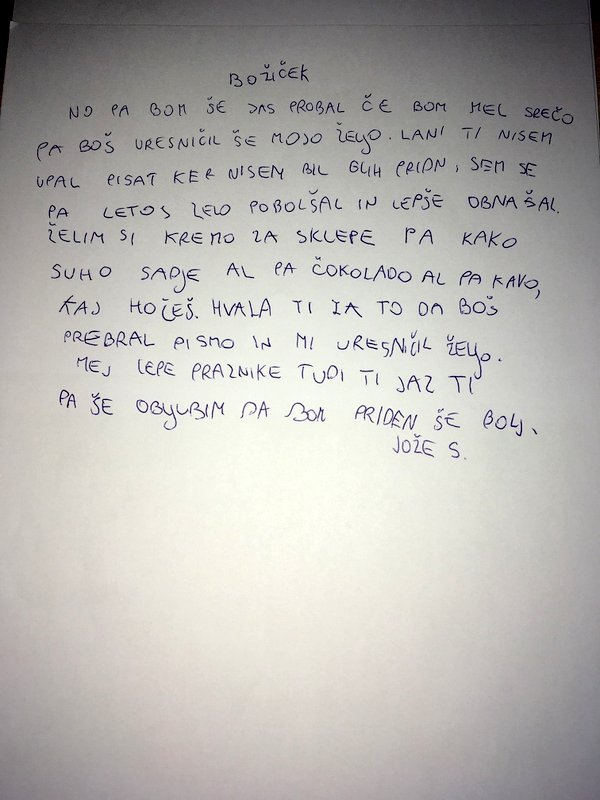 BOŽIČEK
NO PA BOM ŠE JAS PROBAL ČE BOM MEL SREČO
PA BOŠ URESNIČIL ŠE MOJO ŽELJO. LANI TI NISEM
UPAL PISAT KER NISEM BIL GLIH PRIDN, SEM SE
PA LETOS ZELO POBOLŠAL IN LEPŠE OBNAŠAL.
ŽELIM SI KREMO ZA SKLEPE PA KAKO
SUHO SADJE AL PA ČOKOLADO AL PA KAVO,
KAJ HOČEŠ. HVALA TI ZA TO DA BOŠ
PREBRAL PISMO IN MI URESNIČIL ŽELJO.
MEJ LEPE PRAZNIKE TUDI TI JAZ TI
PA ŠE OBLJUBIM DA BOM PRIDEN ŠE BOLJ.
JOŽE S.